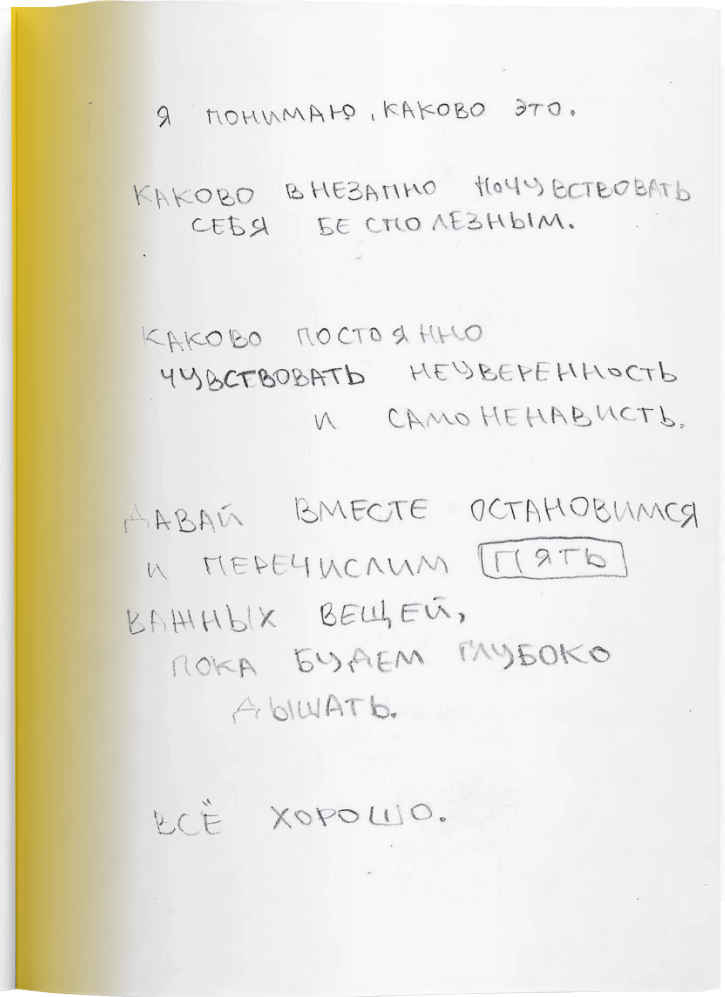 Я ПОНИМАЮ, КАКОВО ЭТО.
КАКОВО ВНЕЗАПНО ПОЧУВСТВОВАТЬ
СЕБЯ БЕСПОЛЕЗНЫМ.
КАКОВО ПОСТОЯННО
ЧУВСТВОВАТЬ НЕУВЕРЕННОСТЬ
И САМОНЕНАВИСТЬ.
ДАВАЙ ВМЕСТЕ ОСТАНОВИМСЯ
И ПЕРЕЧИСЛИМ ПЯТЬ
ВАЖНЫХ ВЕЩЕЙ,
ПОКА БУДЕМ ГЛУБОКО
ДЫШАТЬ.
ВСЁ ХОРОШО.